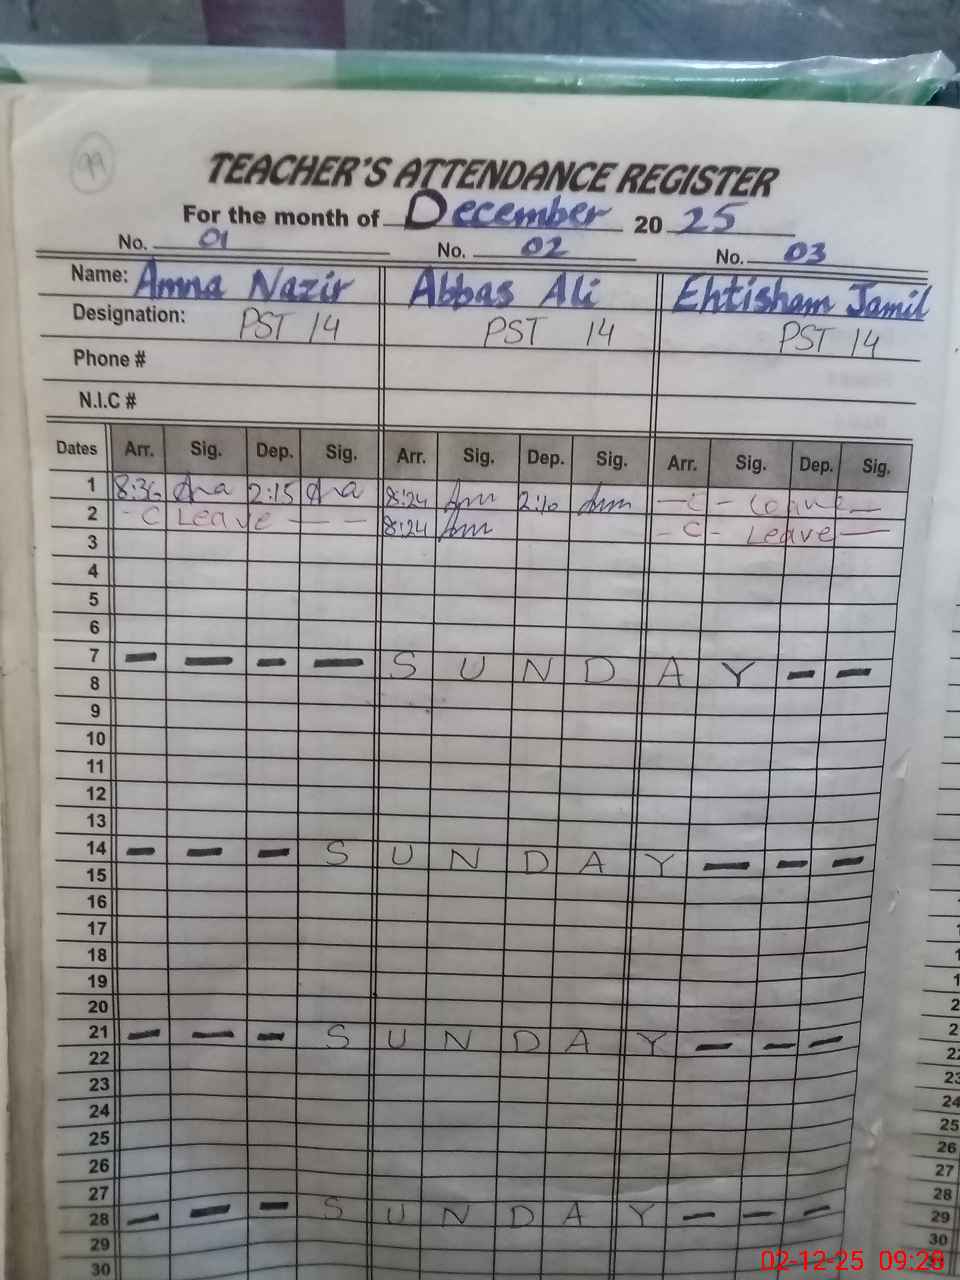 99
TEACHER'S ATTENDANCE REGISTER
For the month of December 2025
No. 01 No. 02 No. 03
Name: Amna Nazir Abbas Ali Ehtisham Jamil
Designation: PST 14 PST 14 PST 14
Phone #
N.I.C #
Dates Arr. Sig. Dep. Sig. Arr. Sig. Dep. Sig. Arr. Sig. Dep. Sig.
1 2:15 8:24 2:10 - C - Leave -
2 - C Leave - - 8:24 - C - Leave -
3
4
5
6
7 - - - - S U N D A Y - -
8
9
10
11
12
13
14 - - - S U N D A Y - - -
15
16
17
18
19
20
21 - - - S U N D A Y - - -
22
23
24
25
26
27
28 - - - S U N D A Y - - -
29
30
22
23
24
25
26
27
28
29
30
02-12-25 09:28